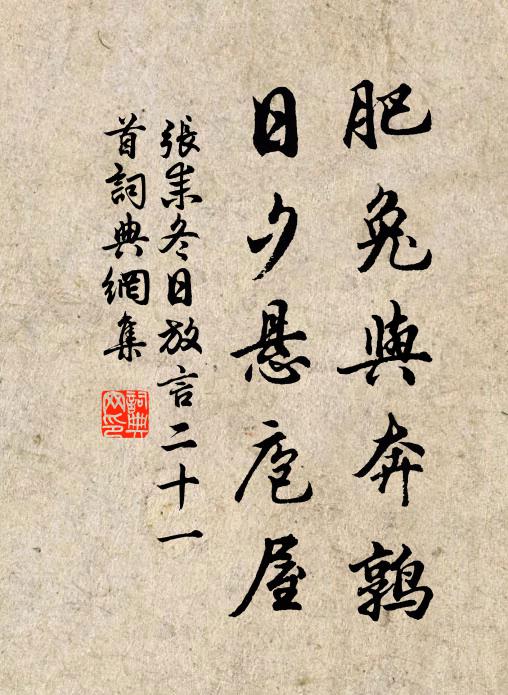 肥兔與奔鶉
日夕懸庖屋
張耒冬日放言二十一
首詞典網集
詞典
网印